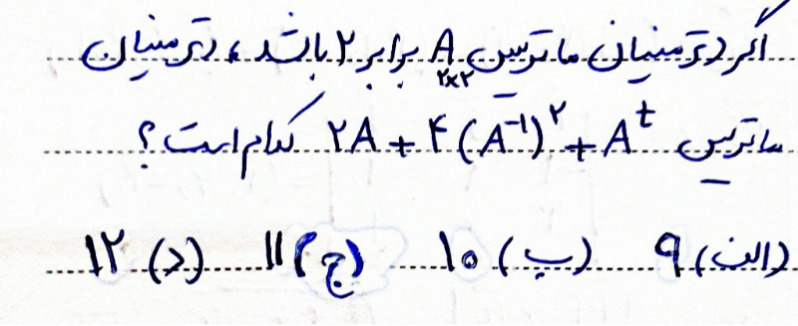 اگر دترمینان ماتریس A۲×۲ برابر ۲ باشد، دترمینان
ماتریس ۲A + ۴(A⁻¹)² + Aᵗ کدام است؟
الف) ۹ ب) ۱۰ ج) ۱۱ د) ۱۲